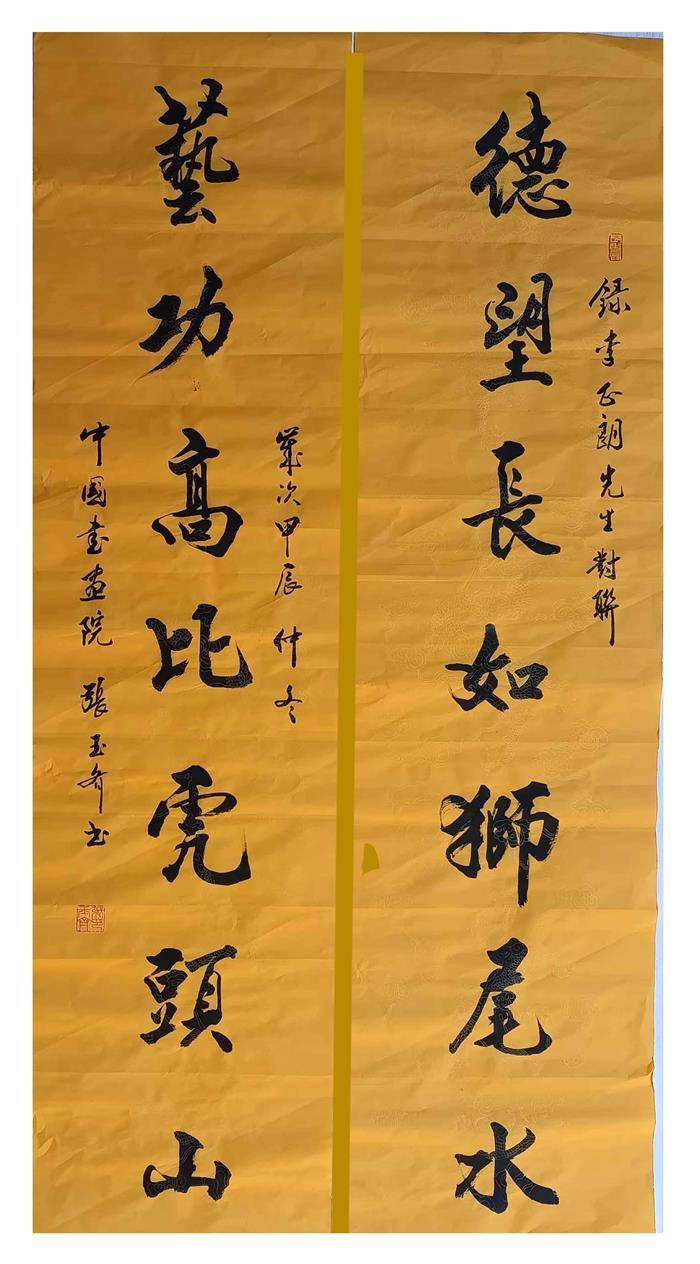 德望長如獅尾水
録李正朗先生對聯
藝功高比虎頭山
歲次甲辰仲冬
中國書畫院 張玉齐书